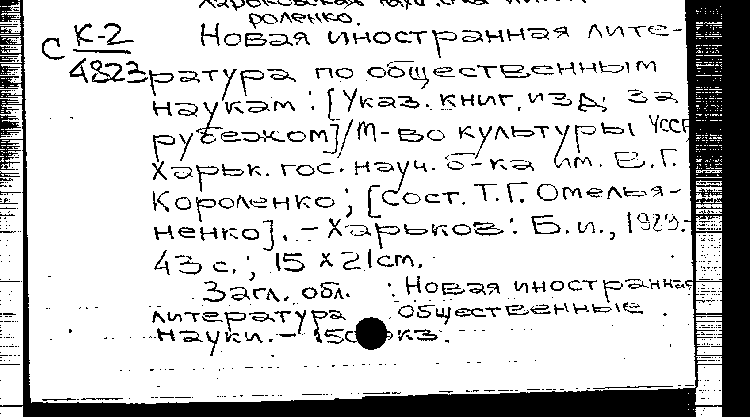 роленко.
С К-2 Новая иностранная лите-
4823 ратура по общественным
наукам : [Указ. книг, изд. за
рубежом] / М-во культуры УССР,
Харьк. гос. науч. б-ка им. В.Г.
Короленко ; [Сост. Т.Г. Омелья-
ненко]. - Харьков : Б.и., 19
43 с. ; 15 х 21 cm.
Загл. обл. : Новая иностранная
литература общественные
науки. -